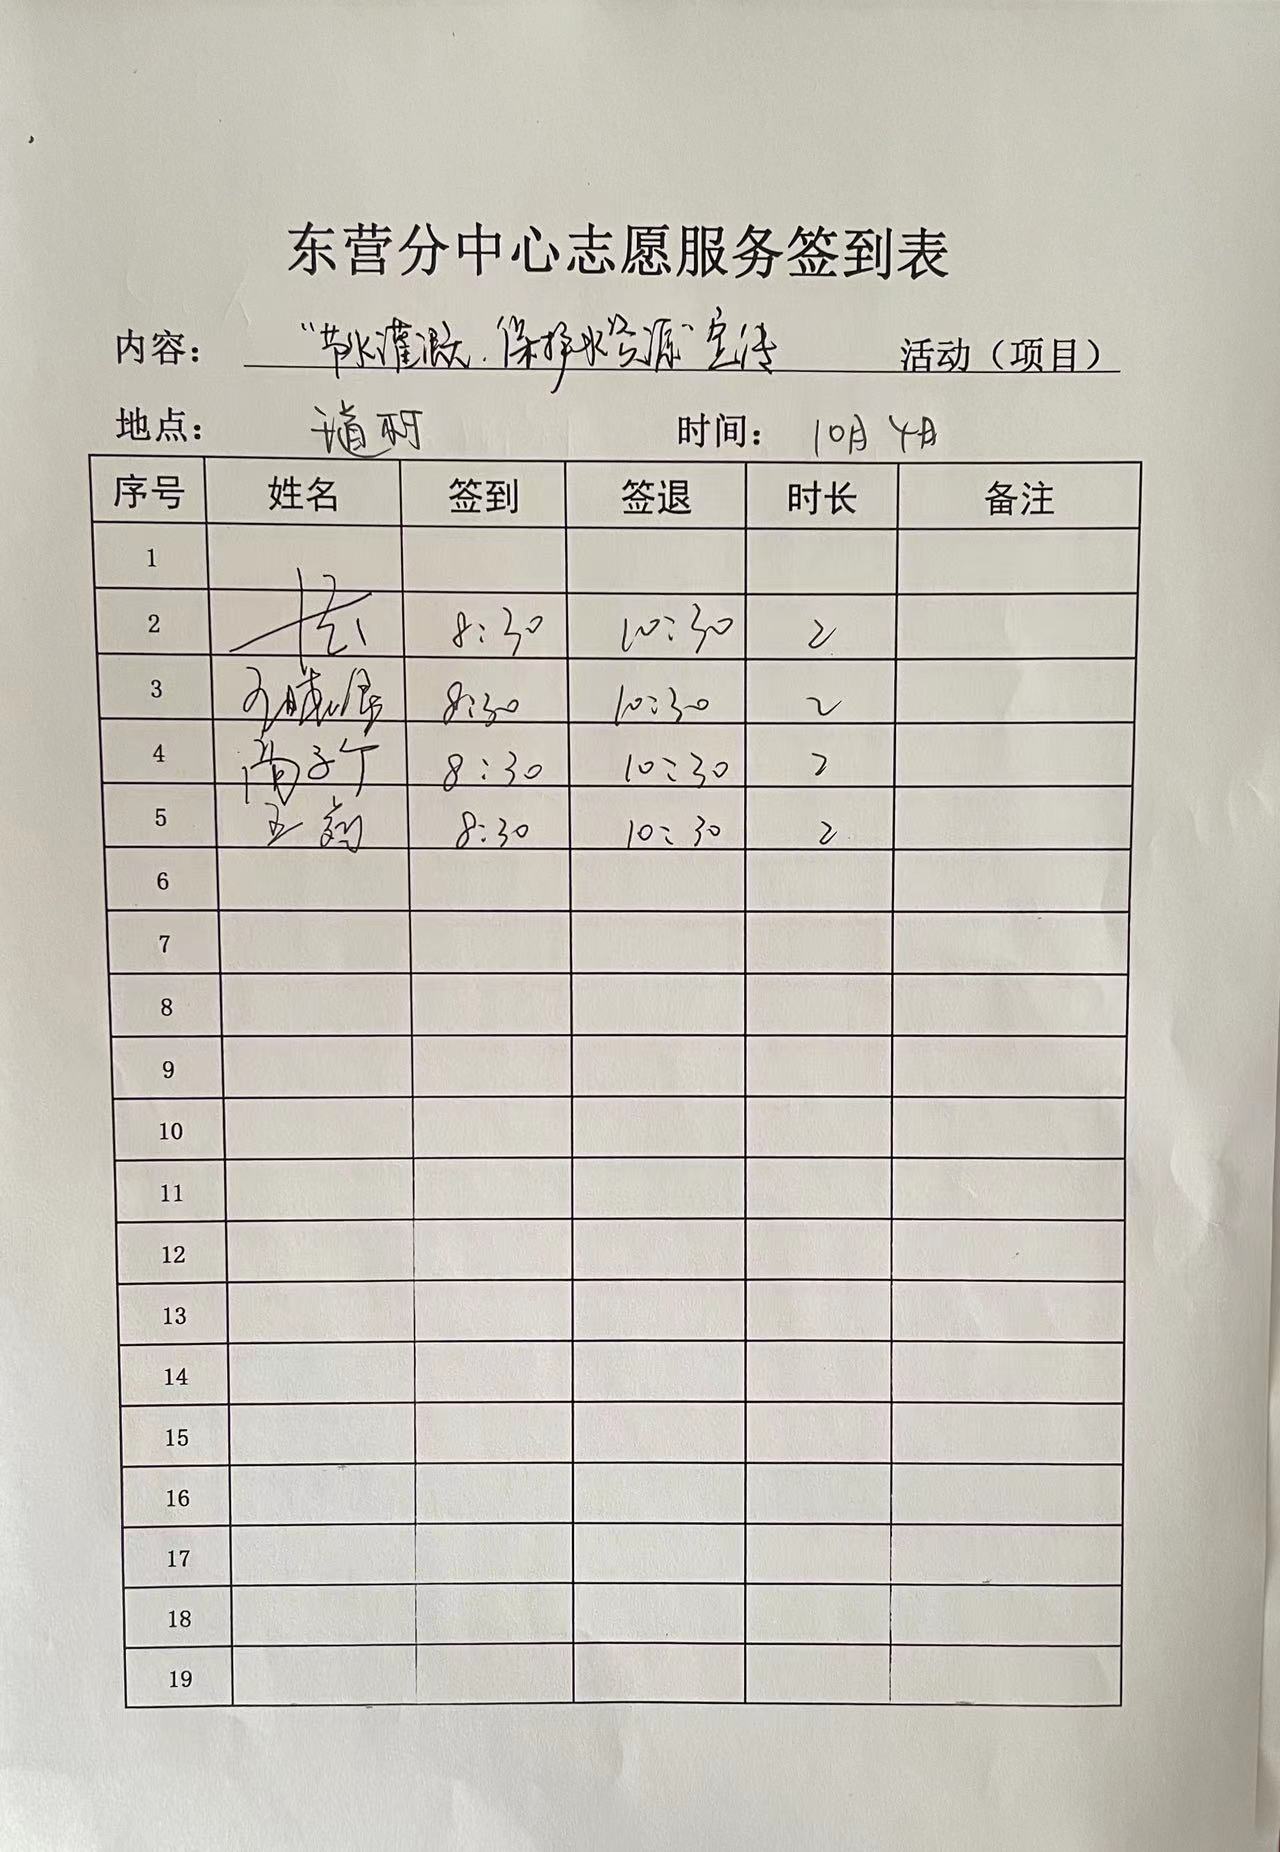 东营分中心志愿服务签到表
内容： “节水灌溉.保护水资源”宣传 活动（项目）
地点： 时间： 10月4日
序号 姓名 签到 签退 时长 备注
1
2 8:30 10:30 2
3 8:30 10:30 2
4 8:30 10:30 2
5 王 8:30 10:30 2
6
7
8
9
10
11
12
13
14
15
16
17
18
19